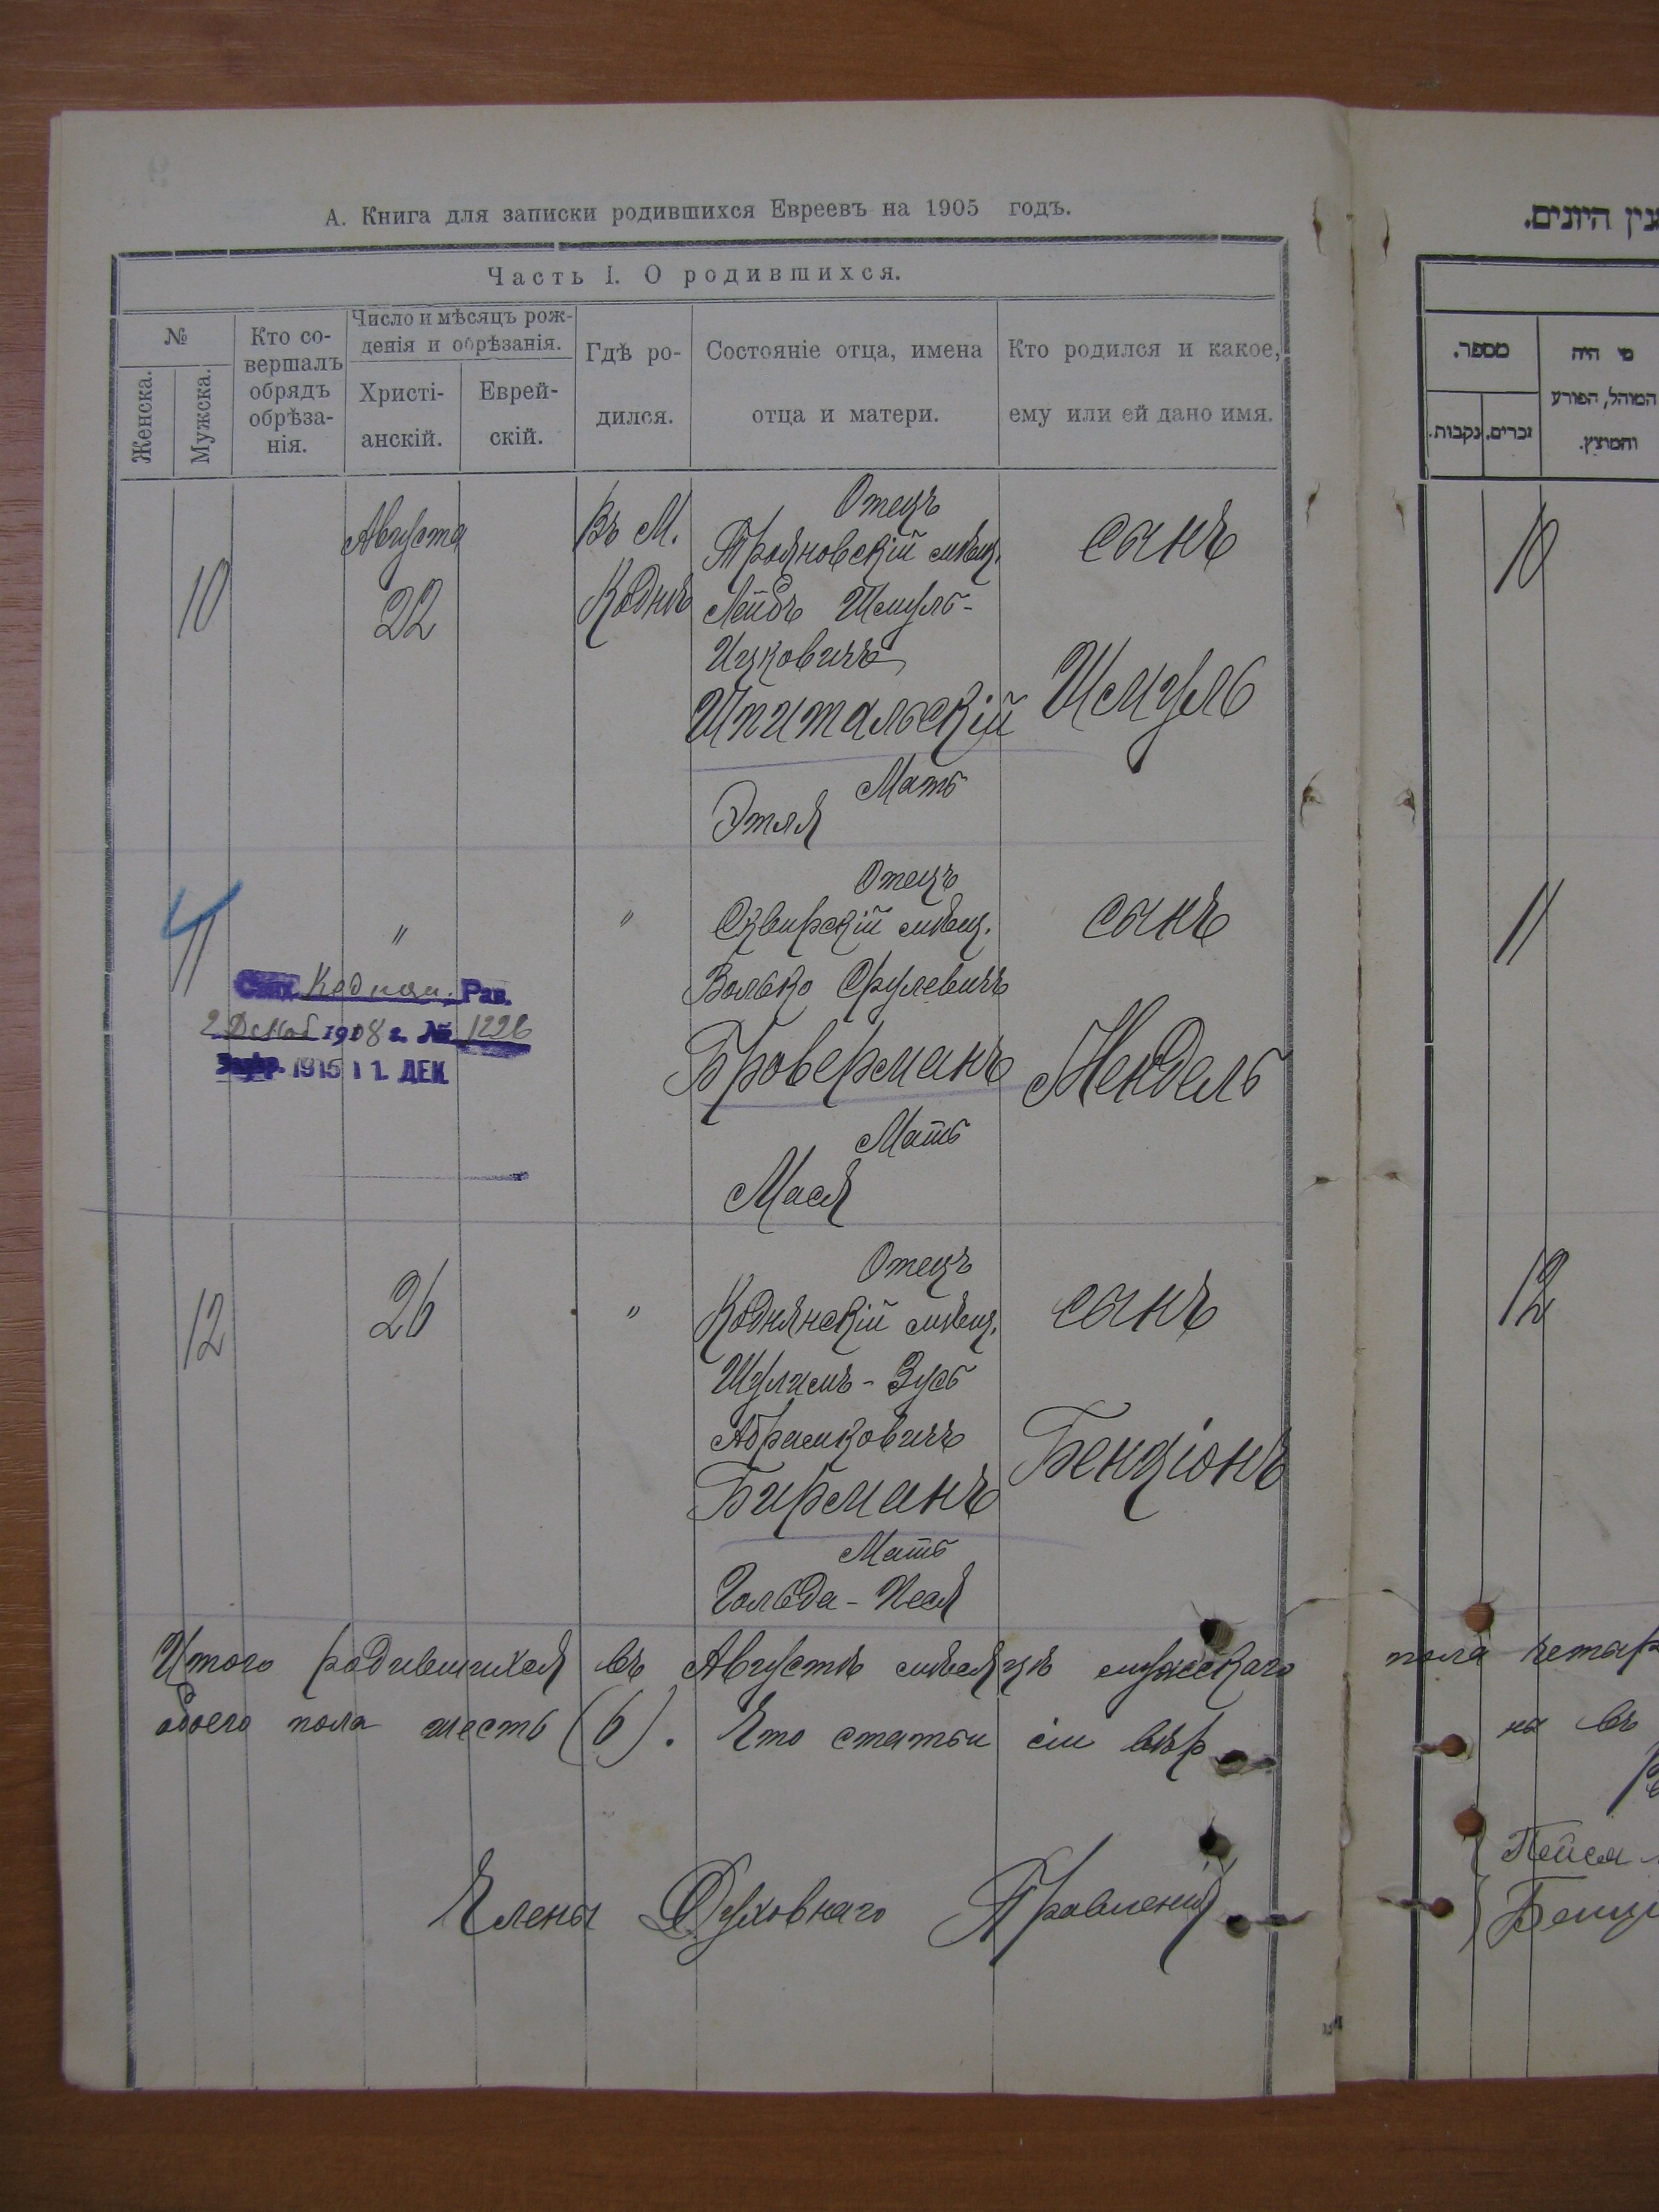 А. Книга для записки родившихся Евреевъ на 1905 годъ.
Часть I. О родившихся.
№
Женска.
Мужска.
Кто со-
вершалъ
обрядъ
обрѣза-
нія.
Число и мѣсяцъ рож-
денія и обрѣзанія.
Христі-
анскій.
Еврей-
скій.
Гдѣ ро-
дился.
Состояніе отца, имена
отца и матери.
Кто родился и какое,
ему или ей дано имя.
10
Августа
22
Въ М.
Коднѣ
Отецъ
Трояновскій мѣщ.
Лейбъ Шмуль-
Ицковичъ
Шпитальскій
Мать
Этля
сынъ
Шмуль
11
"
"
Отецъ
Сквирскій мѣщ.
Волько Срулевичъ
Броверманъ
Мать
Мася
сынъ
Мендель
Кодня. Рав.
2 Декаб 1908 г. № 1226
1915 11. ДЕК
12
26
"
Отецъ
Коднянскій мѣщ.
Шулимъ-Зусь
Абрамковичъ
Бирманъ
Мать
Гольда-Песя
сынъ
Бенціонъ
Итого родившихся въ Августѣ мѣсяцѣ мужскаго
обоего пола шесть (6). Что статьи сіи вѣр
Члены Духовнаго Правленія
נין היונים.
מספר.
נקבות.
זכרים.
מי היה
המוהל, הפורע
והמוצץ.
10
11
12
пола четыр
ны въ
Пейся